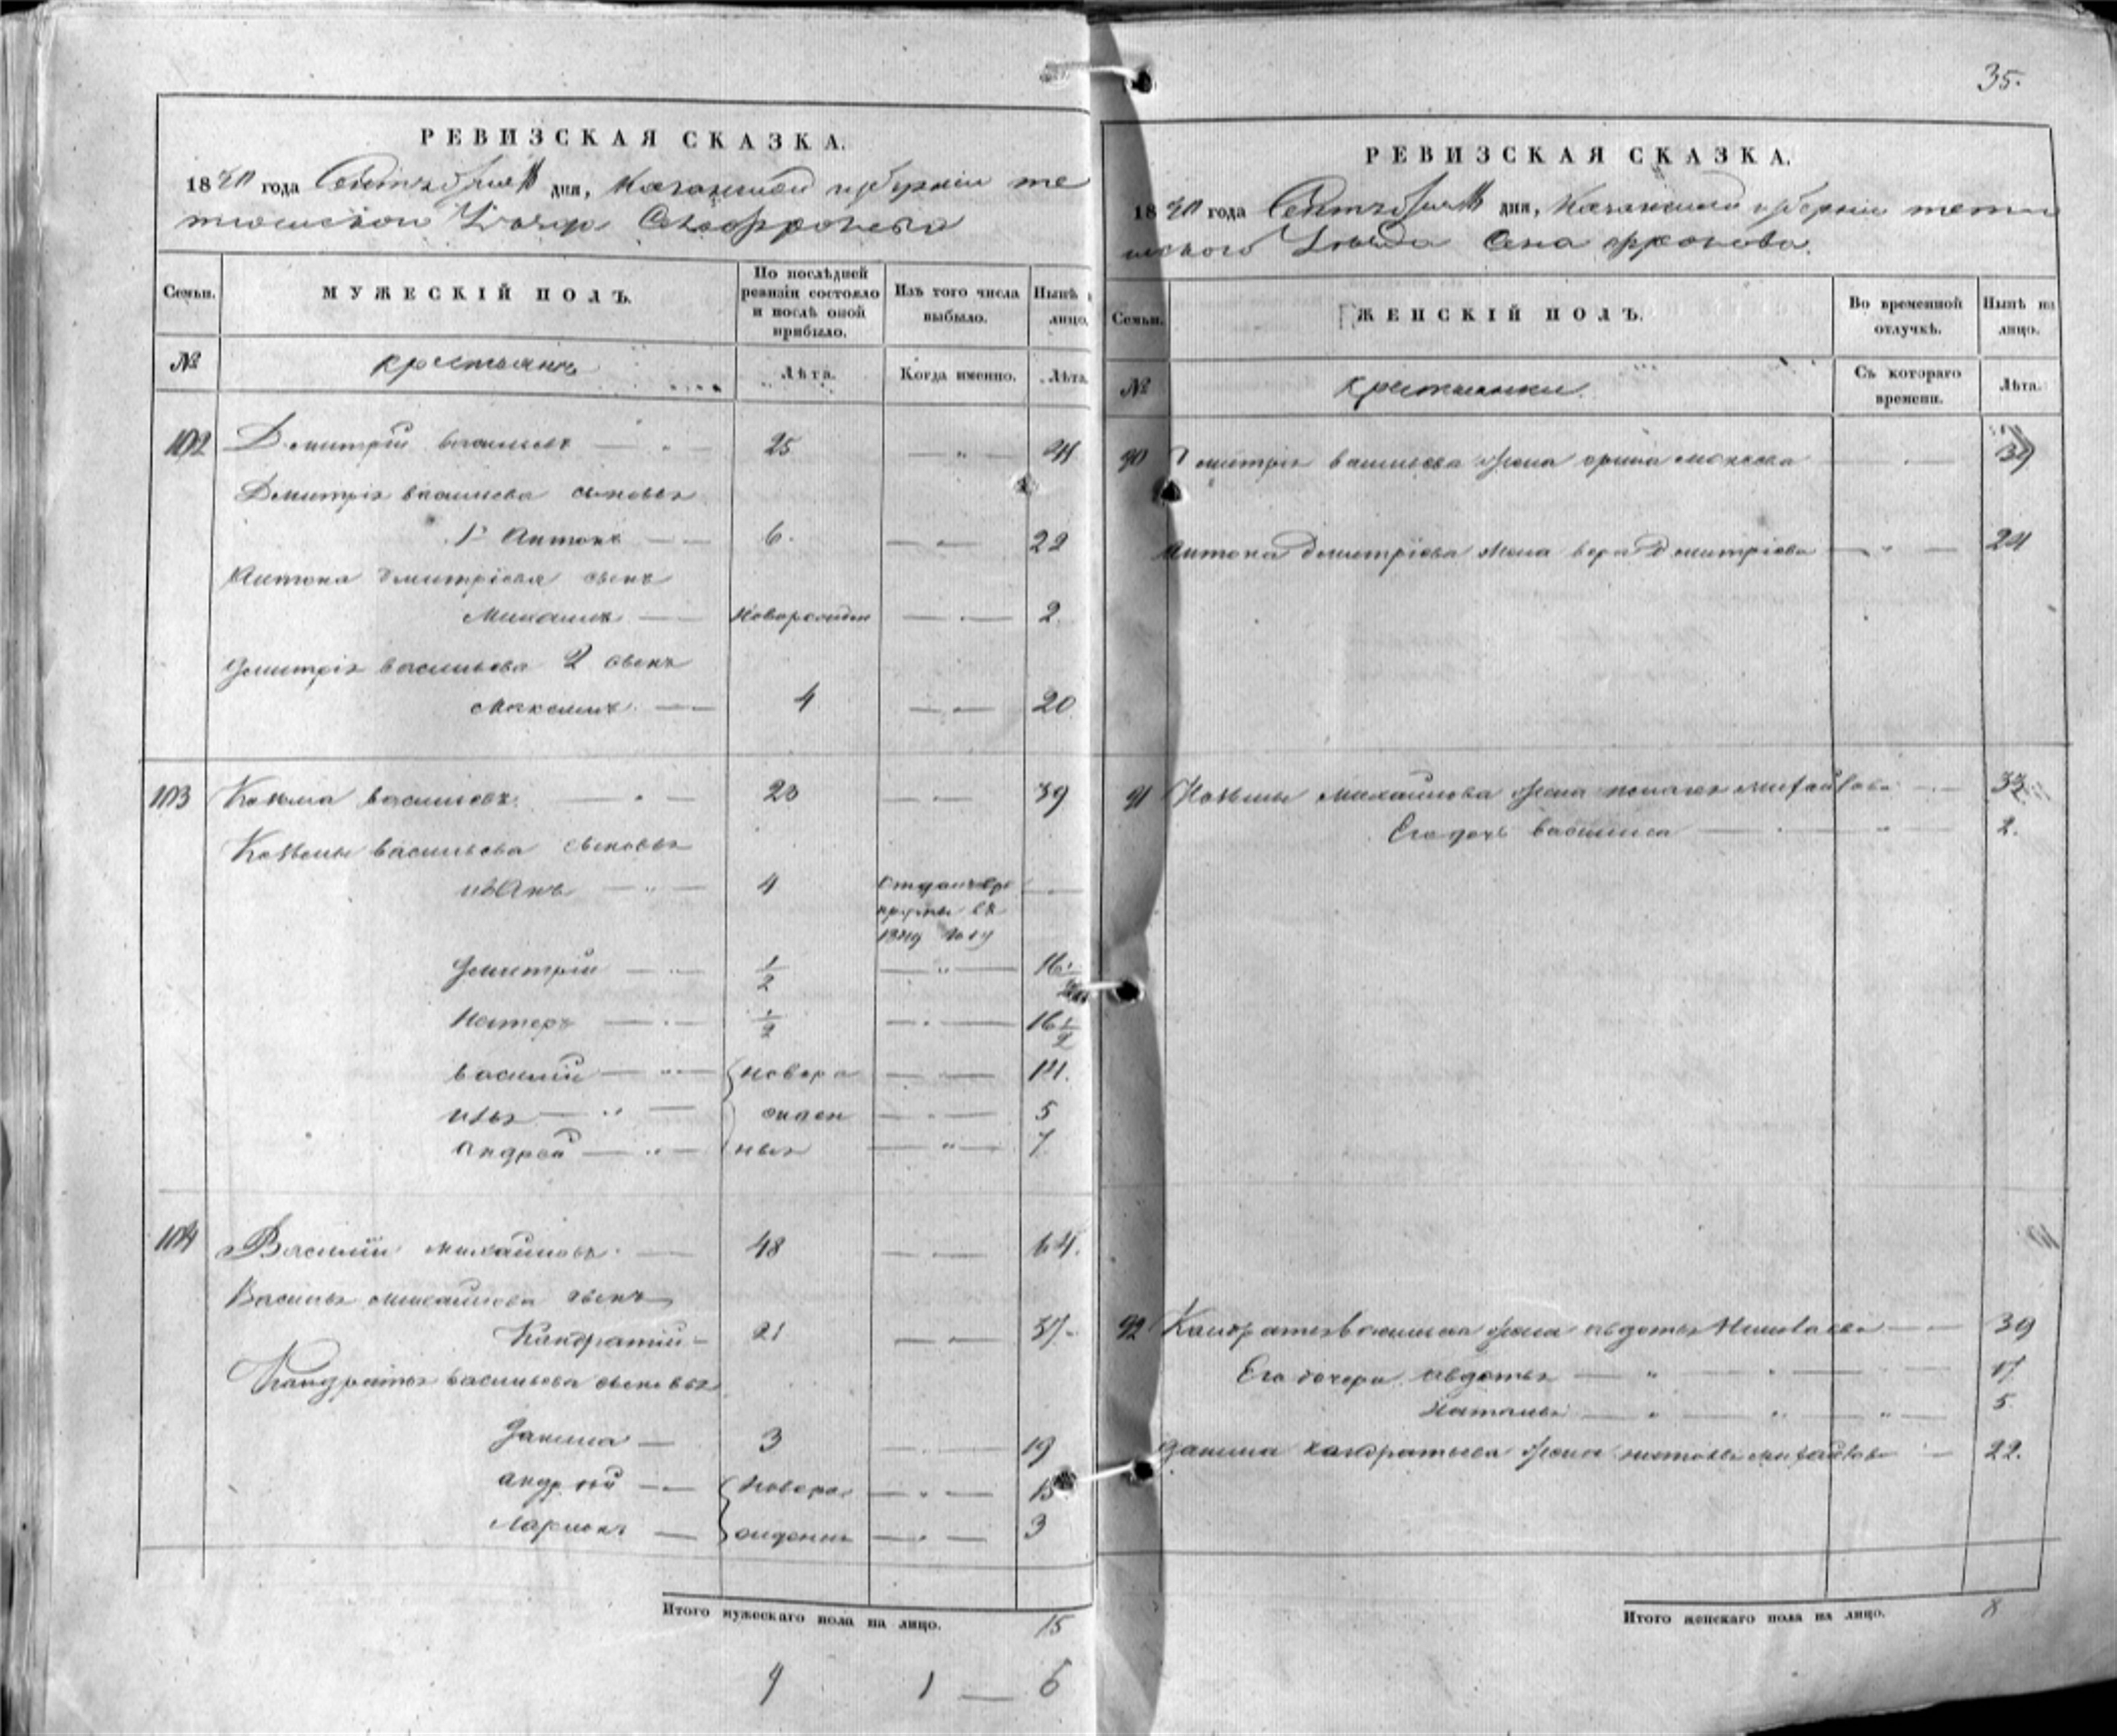 РЕВИЗСКАЯ СКАЗКА.
1850 года Сентября дня, Казанской губернии те
тюшского Уезда Села Фролова
Семьи. МУЖЕСКІЙ ПОЛЪ. По послѣдней ревизіи состояло и послѣ оной прибыло. Изъ того числа выбыло. Нынѣ лицо.
№ крестьянъ Лѣта. Когда именно. Лѣта.
102 Дмитрій васильевъ 25 41
Дмитрія васильева сыновья
1й Антонъ 6. 22
Антона дмитріева сынъ
Михаилъ новорожден 2.
Дмитрія васильева 2 сынъ
Максимъ 4 20
103 Козьма васильевъ. 23 39
Козьмы васильева сыновья
иванъ 4 отданъ въ ре
круты въ
1849 году
Дмитрій 1/2 16 1/2
Несторъ 1/2 16 1/2
василій новоро 14.
илья жден 5
Андрей ныя 7
104 Василій михайловъ 48 64.
Василья михайлова сынъ
Кандратій 21 37.
Кандратья васильева сыновья
Данила 3 19
андрей новоро 15
Ларионъ жденны 3
Итого мужескаго пола на лицо. 15
9 1 6
35.
РЕВИЗСКАЯ СКАЗКА.
1850 года Сентября дня, Казанской губерніи тетю
шского Уезда Села Фролова.
Семьи. ЖЕНСКІЙ ПОЛЪ. Во временной отлучкѣ. Нынѣ на лицо.
№ крестьянки Съ котораго времени. Лѣта.
90 Дмитрія васильева жена орина 39
Антона Дмитріева жена вера Дмитріева 24
91 Козьмы михайлова жена Михайлова 33
Его дочь василиса 2.
92 Кандратья васильева жена авдотья Николаева 39
Его дочери авдотья 17
Наталья 5.
Данила кандратьева жена наталья михайлова 22.
Итого женскаго пола на лицо. 8